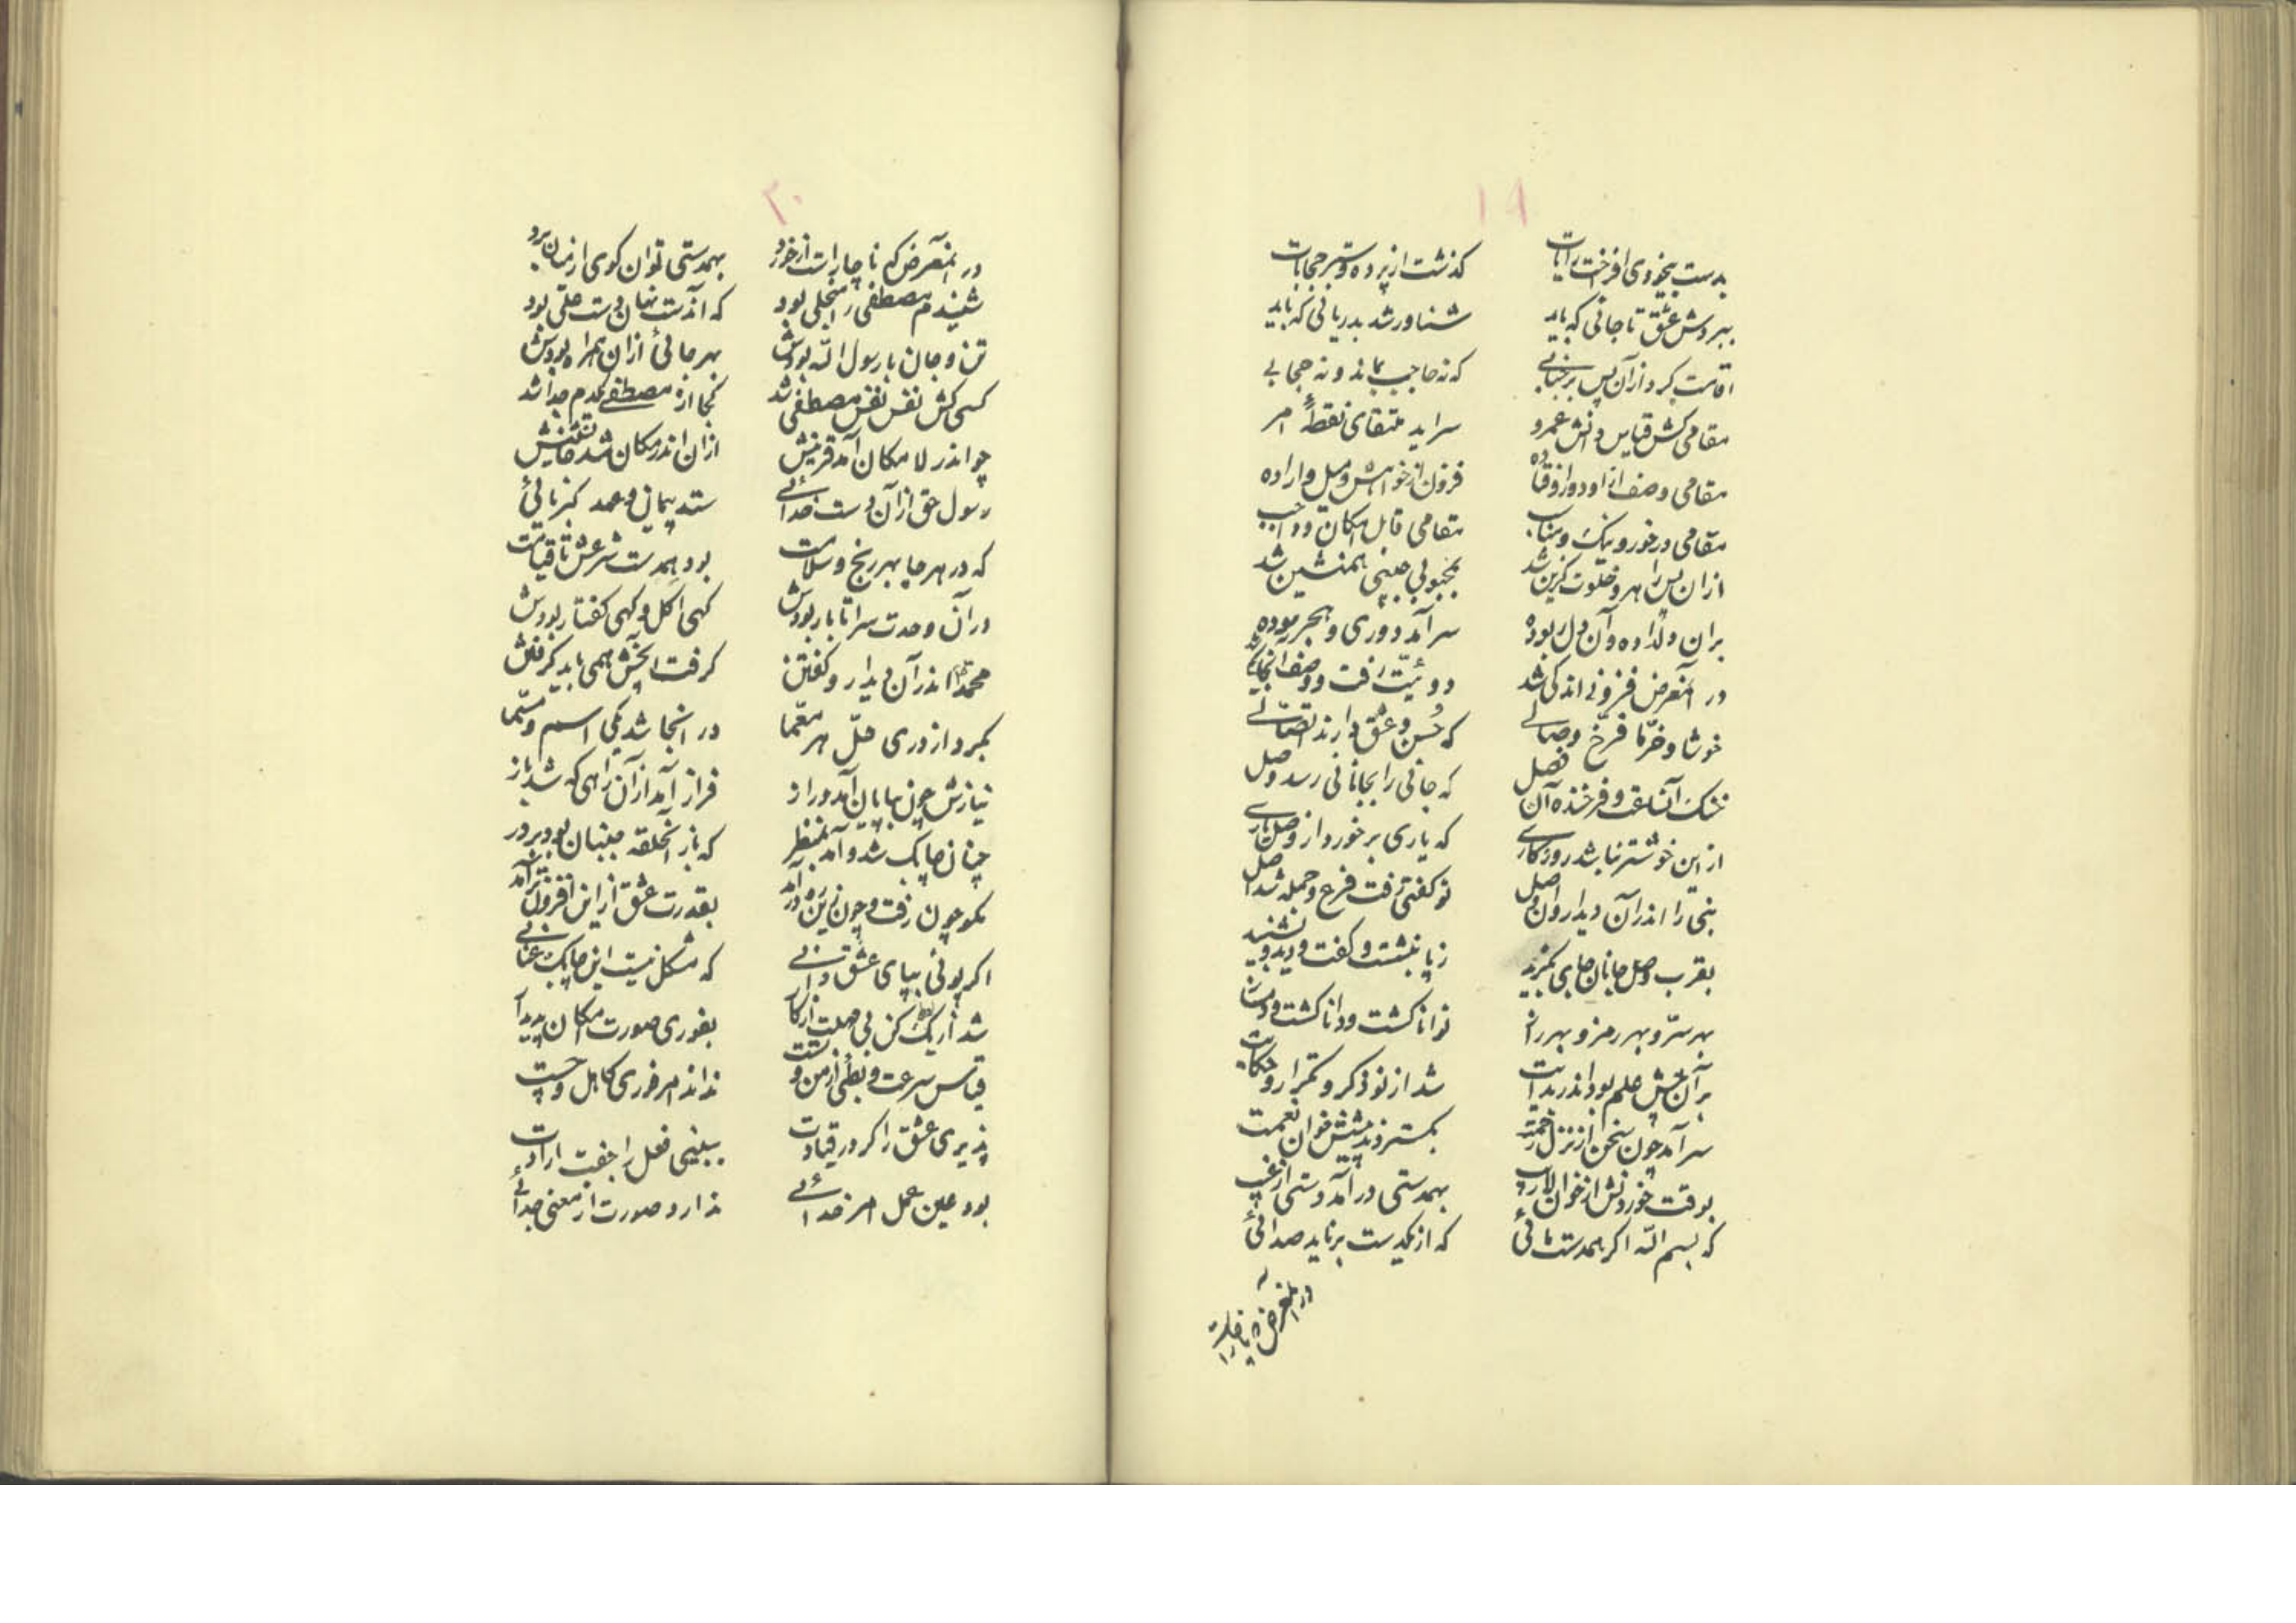 ۱۹
بدست بیخودی افراخت رایات گذشت از پرده و ستر حجابات
ببردش عشق تا جائی که باید شناور شد بدریائی که باید
اقامت کرد از آن پس بر جنابی که نه حاجب بماند و نه حجابی
مقامی کش قیاس دانش عمرو سراید منتهای نقطهٔ امر
مقامی وصف از او دور اوفتاده فزون از خواهش و میل و اراده
مقامی در خور و نیک و مناسب مقامی قابل امکان و واجب
از آن پس راهرو خلوت گزین شد بمحبوبی حبیبی همنشین شد
بران دلداده و آن دل ربوده سر آمد دوری و هجر
در آنعرض فزونی اندکی شد دوئیّت رفت و وصف آنجا یکی شد
خوشا و خرّما فرّخ وصالی که حُسن و عشق دارند اتّصالی
خنک آنساعت و فرخنده آن فصل که جانی را بجانانی رسد وصل
از این خوشتر نباشد روزگاری که یاری برخورد از وصل یاری
نبی را اندر آن دیدار و آن وصل تو گفتی رفت فرع و جمله شد اصل
بقرب وصل جانان جای بگزید ز پا بنشست و گفت و دید و بشنید
بهر سرّ و بهر رمز و بهر راز توانا گشت و دانا گشت و دمساز
بر آنچش علم بود اندر بدایت شد از نو ذکر و تکرار و حکایت
سر آمد چون سخن از نزل رحمت بگستردند پیشش خوان نعمت
بوقت خوردنش از خوان لاریب بهمدستی در آمد دستی از غیب
که بسم اللّه اگر همدست مائی که از یکدست برناید صدائی
در آنعرض که ناچار است
۲۰
در آنعرض که ناچار است از خورد بهمدستی توان گوی از میان برد
شنیدم مصطفی را منجلی بود که آندست نهان دست علی بود
تن و جان با رسول اللّه بودش بهر جائی از آن همراه بودش
کسی کش نفس نفس مصطفی شد کجا از مصطفی یکدم جدا شد
چو اندر لامکان آمد قرینش از آن اندر مکان شد جانشینش
رسول حق از آن دست خدائی ستد پیمان و عهد کبریائی
که در هر جا بهر رنج و سلامت بود همدست شرعش تا قیامت
در آن وحدت سرا تا بار بودش گهی اکل و گهی گفتار بودش
محمد را اندر آن دیدار و گفتن گرفت آنچش همی باید گرفتن
بکرد از وری حلّ هر معّما در آنجا شد یکی اسم و مسّما
نیازش چون بپایان آمد و راز فراز آمد از آن راهی که شد باز
چنان چابک شد و آمد بمنظر که باز آنحلقه جنبان بود بر در
نگو چون رفت و چون زین ره در آمد بقدرت عشق از این افزون تر آمد
اگر پوئی بپای عشق دانی که مشکل نیست این چابک عنانی
شد از یک کن بی مهلت از کار بفوری صورت امکان پدیدار
قیاس سرعت و بطئی از من و تست نداند امر فوری کاهل و چست
پذیری عشق را گر در قیادت ببینی فعل را جفت ارادت
بود عین عمل امر خدائی ندارد صورت از معنی جدائی